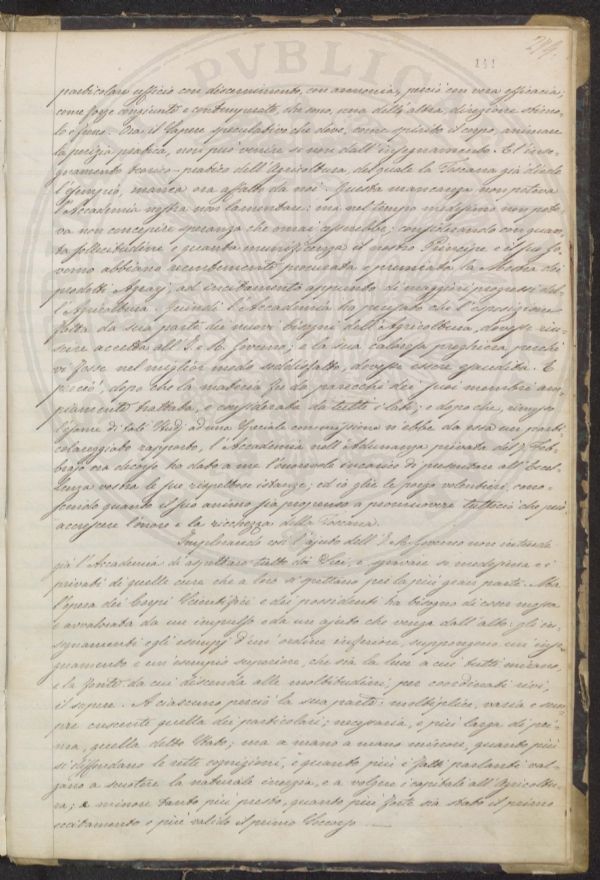 PVBLICA
274.
111
particolare ufficio con discernimento, con armonia, perciò con vera efficacia;
come forze congiunte e contemperate, che sono, una dell'altra, direzione stimo-
lo e freno. Ora il Sapere speculativo che deve, come spirito il corpo, animare
la perizia pratica, non può venire se non dall'insegnamento. E l'inse-
gnamento teorico-pratico dell'Agricoltura del quale la Toscana già diede
l'esempio, manca ora affatto da noi. Questa mancanza non poteva
l'Accademia nostra non lamentare: ma nel tempo medesimo non pote-
va non concepire speranza che omai cesserebbe; considerando con quan-
ta sollecitudine e quanta munificenza il nostro Principe e il suo Go-
verno abbiano recentemente procurata e premiata la Mostra dei
prodotti Agrarj, ad incitamento appunto di maggiori progressi del-
l'Agricoltura. Quindi l'Accademia ha pensato che l'esposizione
fatta da sua parte dei nuovi bisogni dell'Agricoltura, dovesse riu-
scire accetta all'I. e R. Governo; e la sua calorosa preghiera, perchè
vi fosse nel miglior modo soddisfatto, dovesse essere esaudita. E
perciò, dopo che la materia fu da parecchi dei suoi membri am-
piamente trattata, e considerata da tutti i lati; e dopo che, rimesso
l'esame di tali studj ad una speciale commissione n'ebbe da essa un parti-
colareggiato rapporto, l'Accademia nell'Adunanza privata del 7. Feb-
brajo ora decorso ha dato a me l'onorevole incarico di presentare all'Eccel-
lenza vostra le sue rispettose istanze; ed io glie le porgo volentieri, cono-
scendo quanto il suo animo sia propenso a promuovere tuttociò che può
accrescere l'onore e la ricchezza della Toscana.
Implorando voi l'ajuto dell'I. e R. Governo non intende
già l'Accademia di aspettare tutto da Lui, e sgravare se medesima e i
privati di quelle cure che a loro si spettano per la più gran parte. Ma
l'opera dei Corpi Scientifici e dei possidenti ha bisogno di esser mossa
e avvalorata da un impulso e da un ajuto che venga dall'alto: gli in-
segnamenti e gli esempj d'un ordine inferiore, suppongono un inse-
gnamento e un esempio superiore, che sia la luce a cui tutti mirano,
e la fonte da cui discenda alle moltitudini, per coordinati rivi,
il sapere. A ciascuno perciò la sua parte: moltiplice, varia e sem-
pre crescente quella dei particolari; necessaria, e più larga da pri-
ma, quella dello Stato; ma a mano a mano minore, quanto più
si diffondano le rette cognizioni, e quanto più i fatti parlanti val-
gano a scuotere la naturale inerzia, e a volgere i capitali all'Agricoltu-
ra; e minore tanto più presto, quanto più forte sia stato il primo
eccitamento e più valido il primo soccorso.